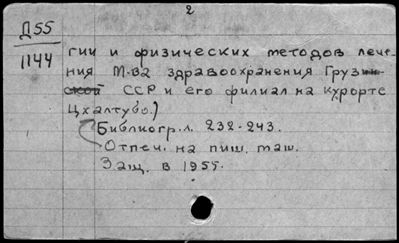 2
Д55
1144
гии и физических методов лече-
ния М-ва здравоохранения Грузин-
ской ССР и его филиал на курорте
Цхалтубо.)
Библиогр. л. 232-243.
Отпеч. на пиш. маш.
Защ. в 1955.